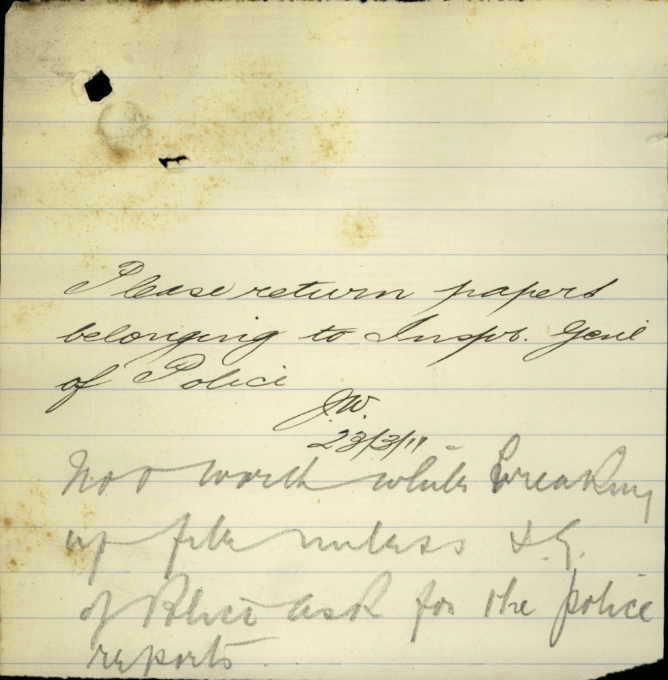 Please return papers
belonging to Inspr. Genl
of Police
J.W.
23/3/11
Not worth while breaking
up file unless I.G.
of Police ask for the police
reports.